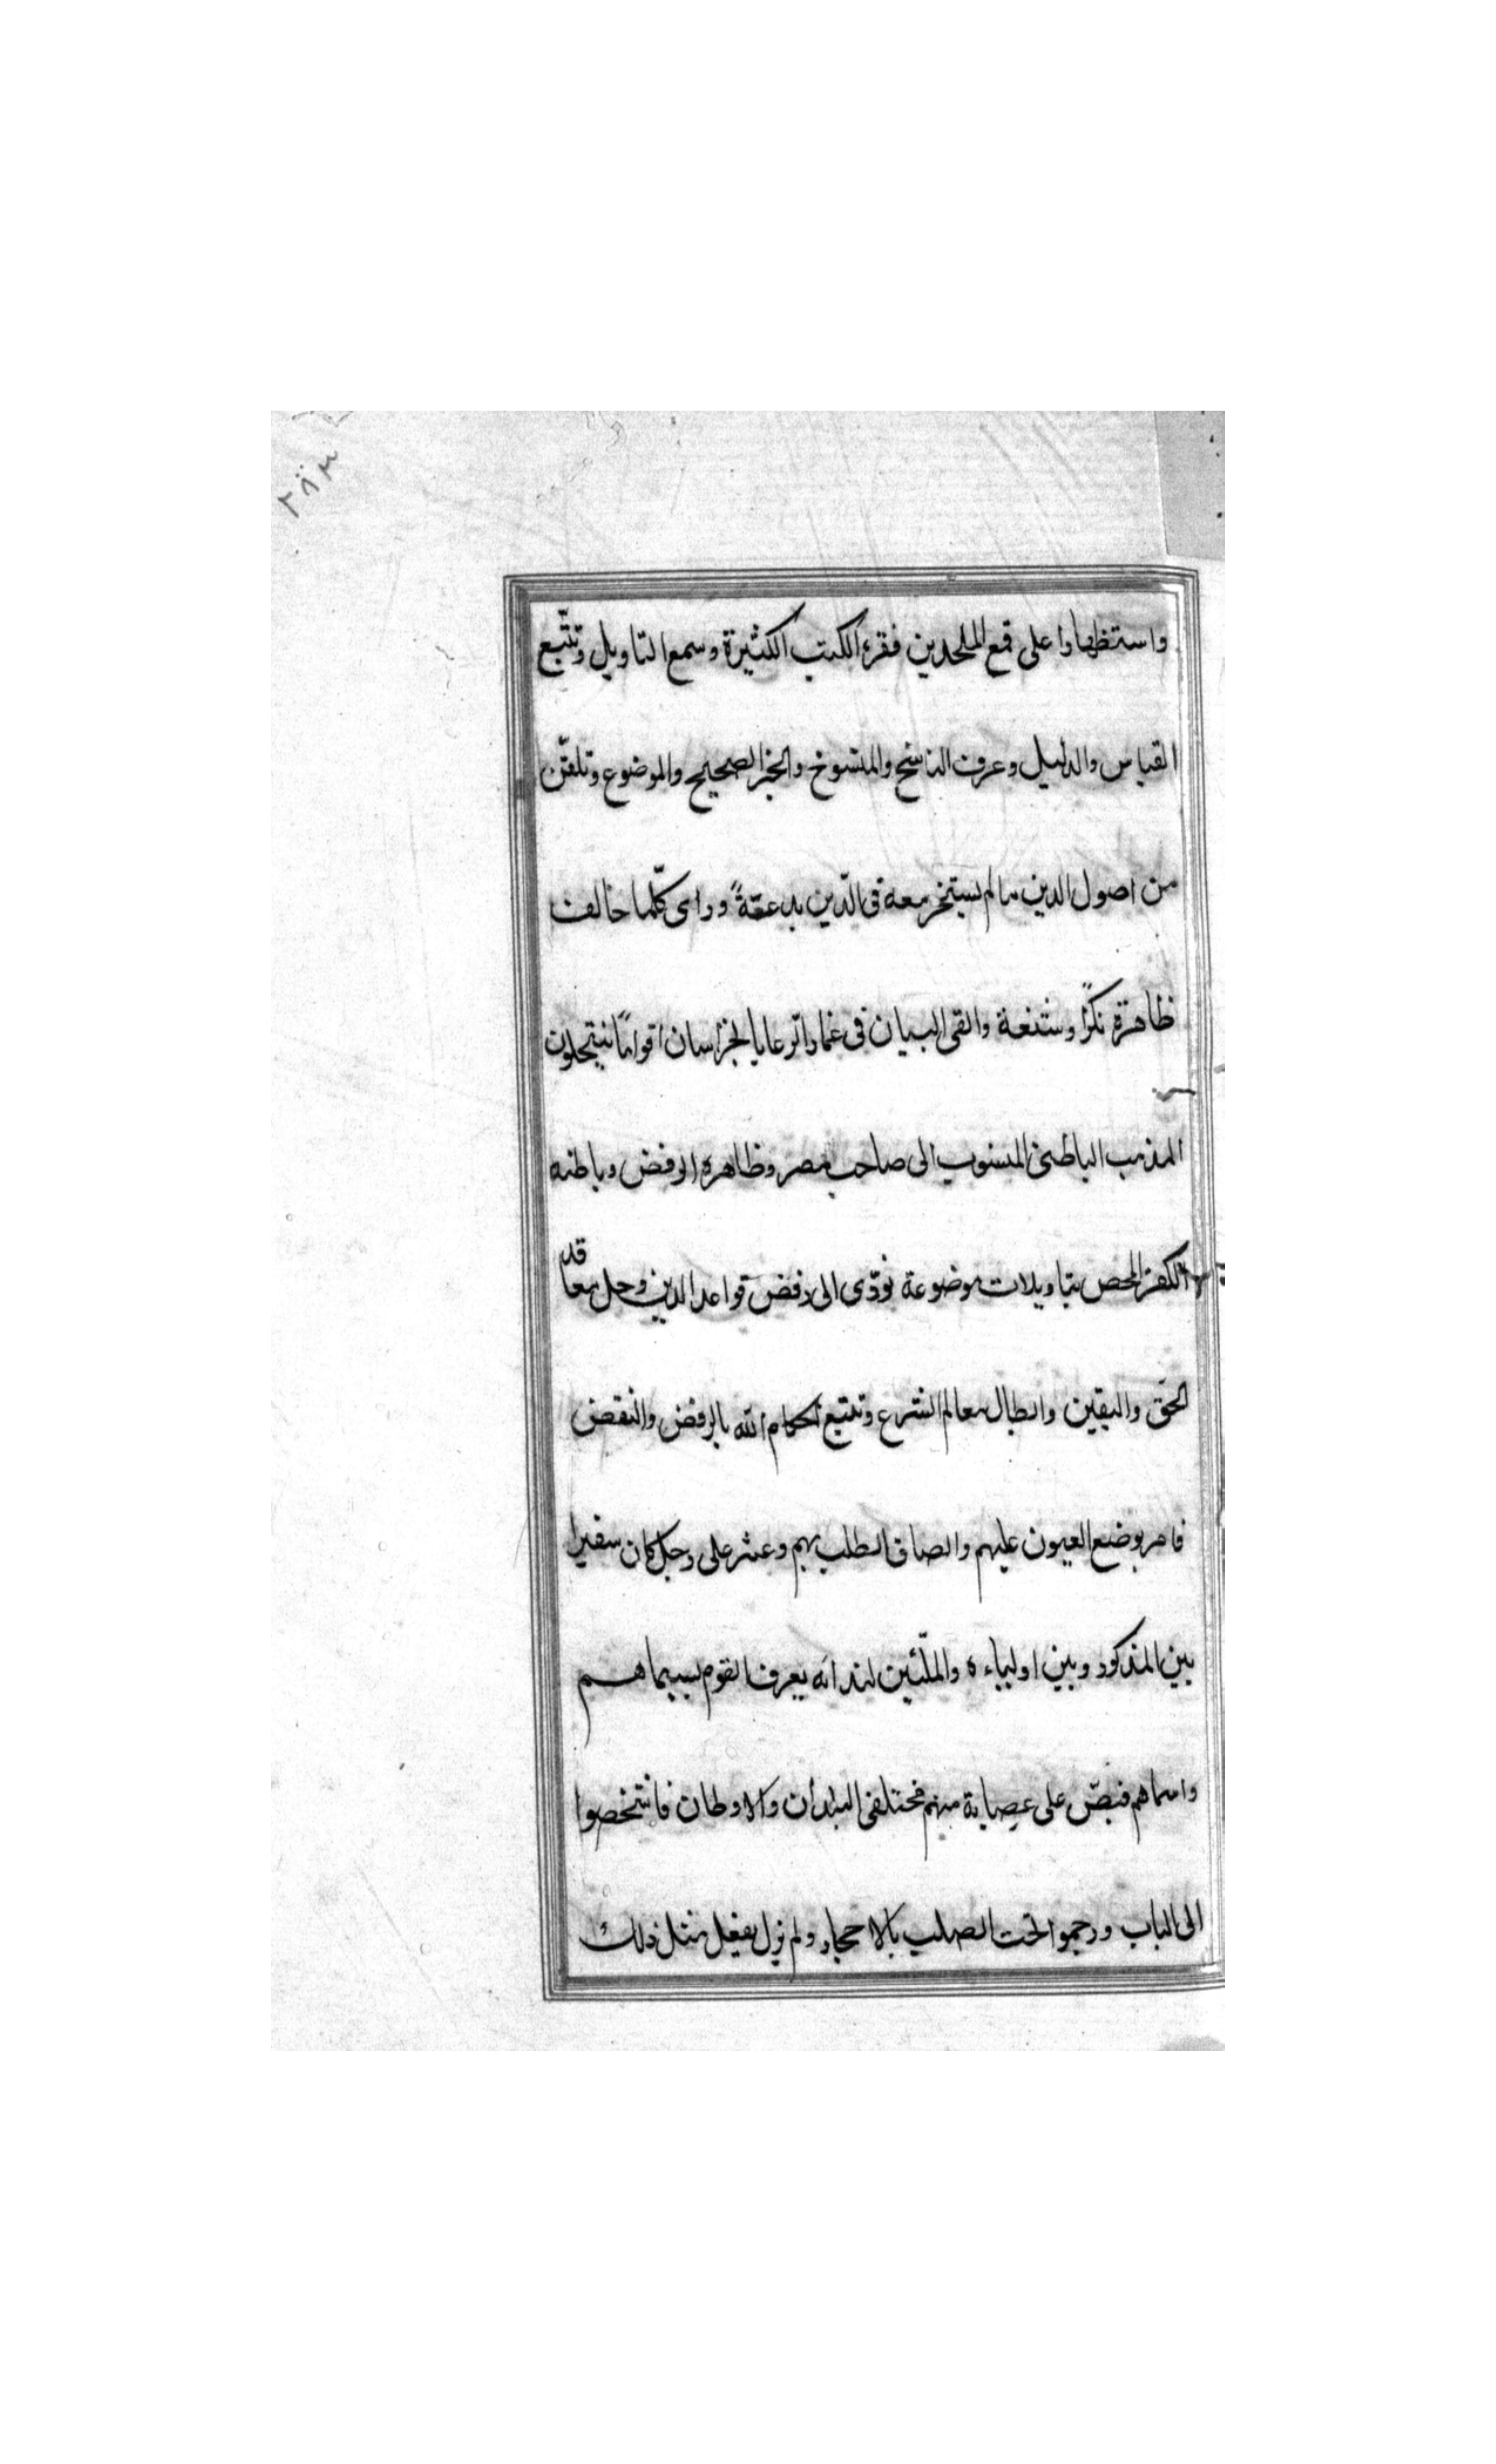 ٢٨٣
واستظهارا على قمع الملحدين فقرء الكتب الكثيرة وسمع التاويل وتتبع
القياس والدليل وعرف الناسخ والمنسوخ والخبر الصحيح والموضوع وتلقن
من اصول الدين ما لم يستخر معه فى الدّين بدعةً وراى كلّما خالف
ظاهرة نكرًا وشنعة والقى اليه ان فى غمار الرعايا بخراسان اقوامًا ينتحلون
المذهب الباطنى المنسوب الى صاحب مصر وظاهره الرفض وباطنه
الكفر المحض بتاويلات موضوعة تؤدّى الى رفض قواعد الدين وحل معاقد
الحق واليقين وابطال معالم الشرع وتتبع احكام الله بالرفض والنقض
فامر بوضع العيون عليهم والصاق الطلب بهم وعثر على رجل كان سفيرا
بين المذكور وبين اولياءه يعرف القوم بسيماهم
واسماهم فنصّ على عصابة منهم مختلفى البلدان والاوطان فانتخصوا
الى الباب ورجموا تحت الصليب بالاحجار ولم يزل يفعل مثل ذلك